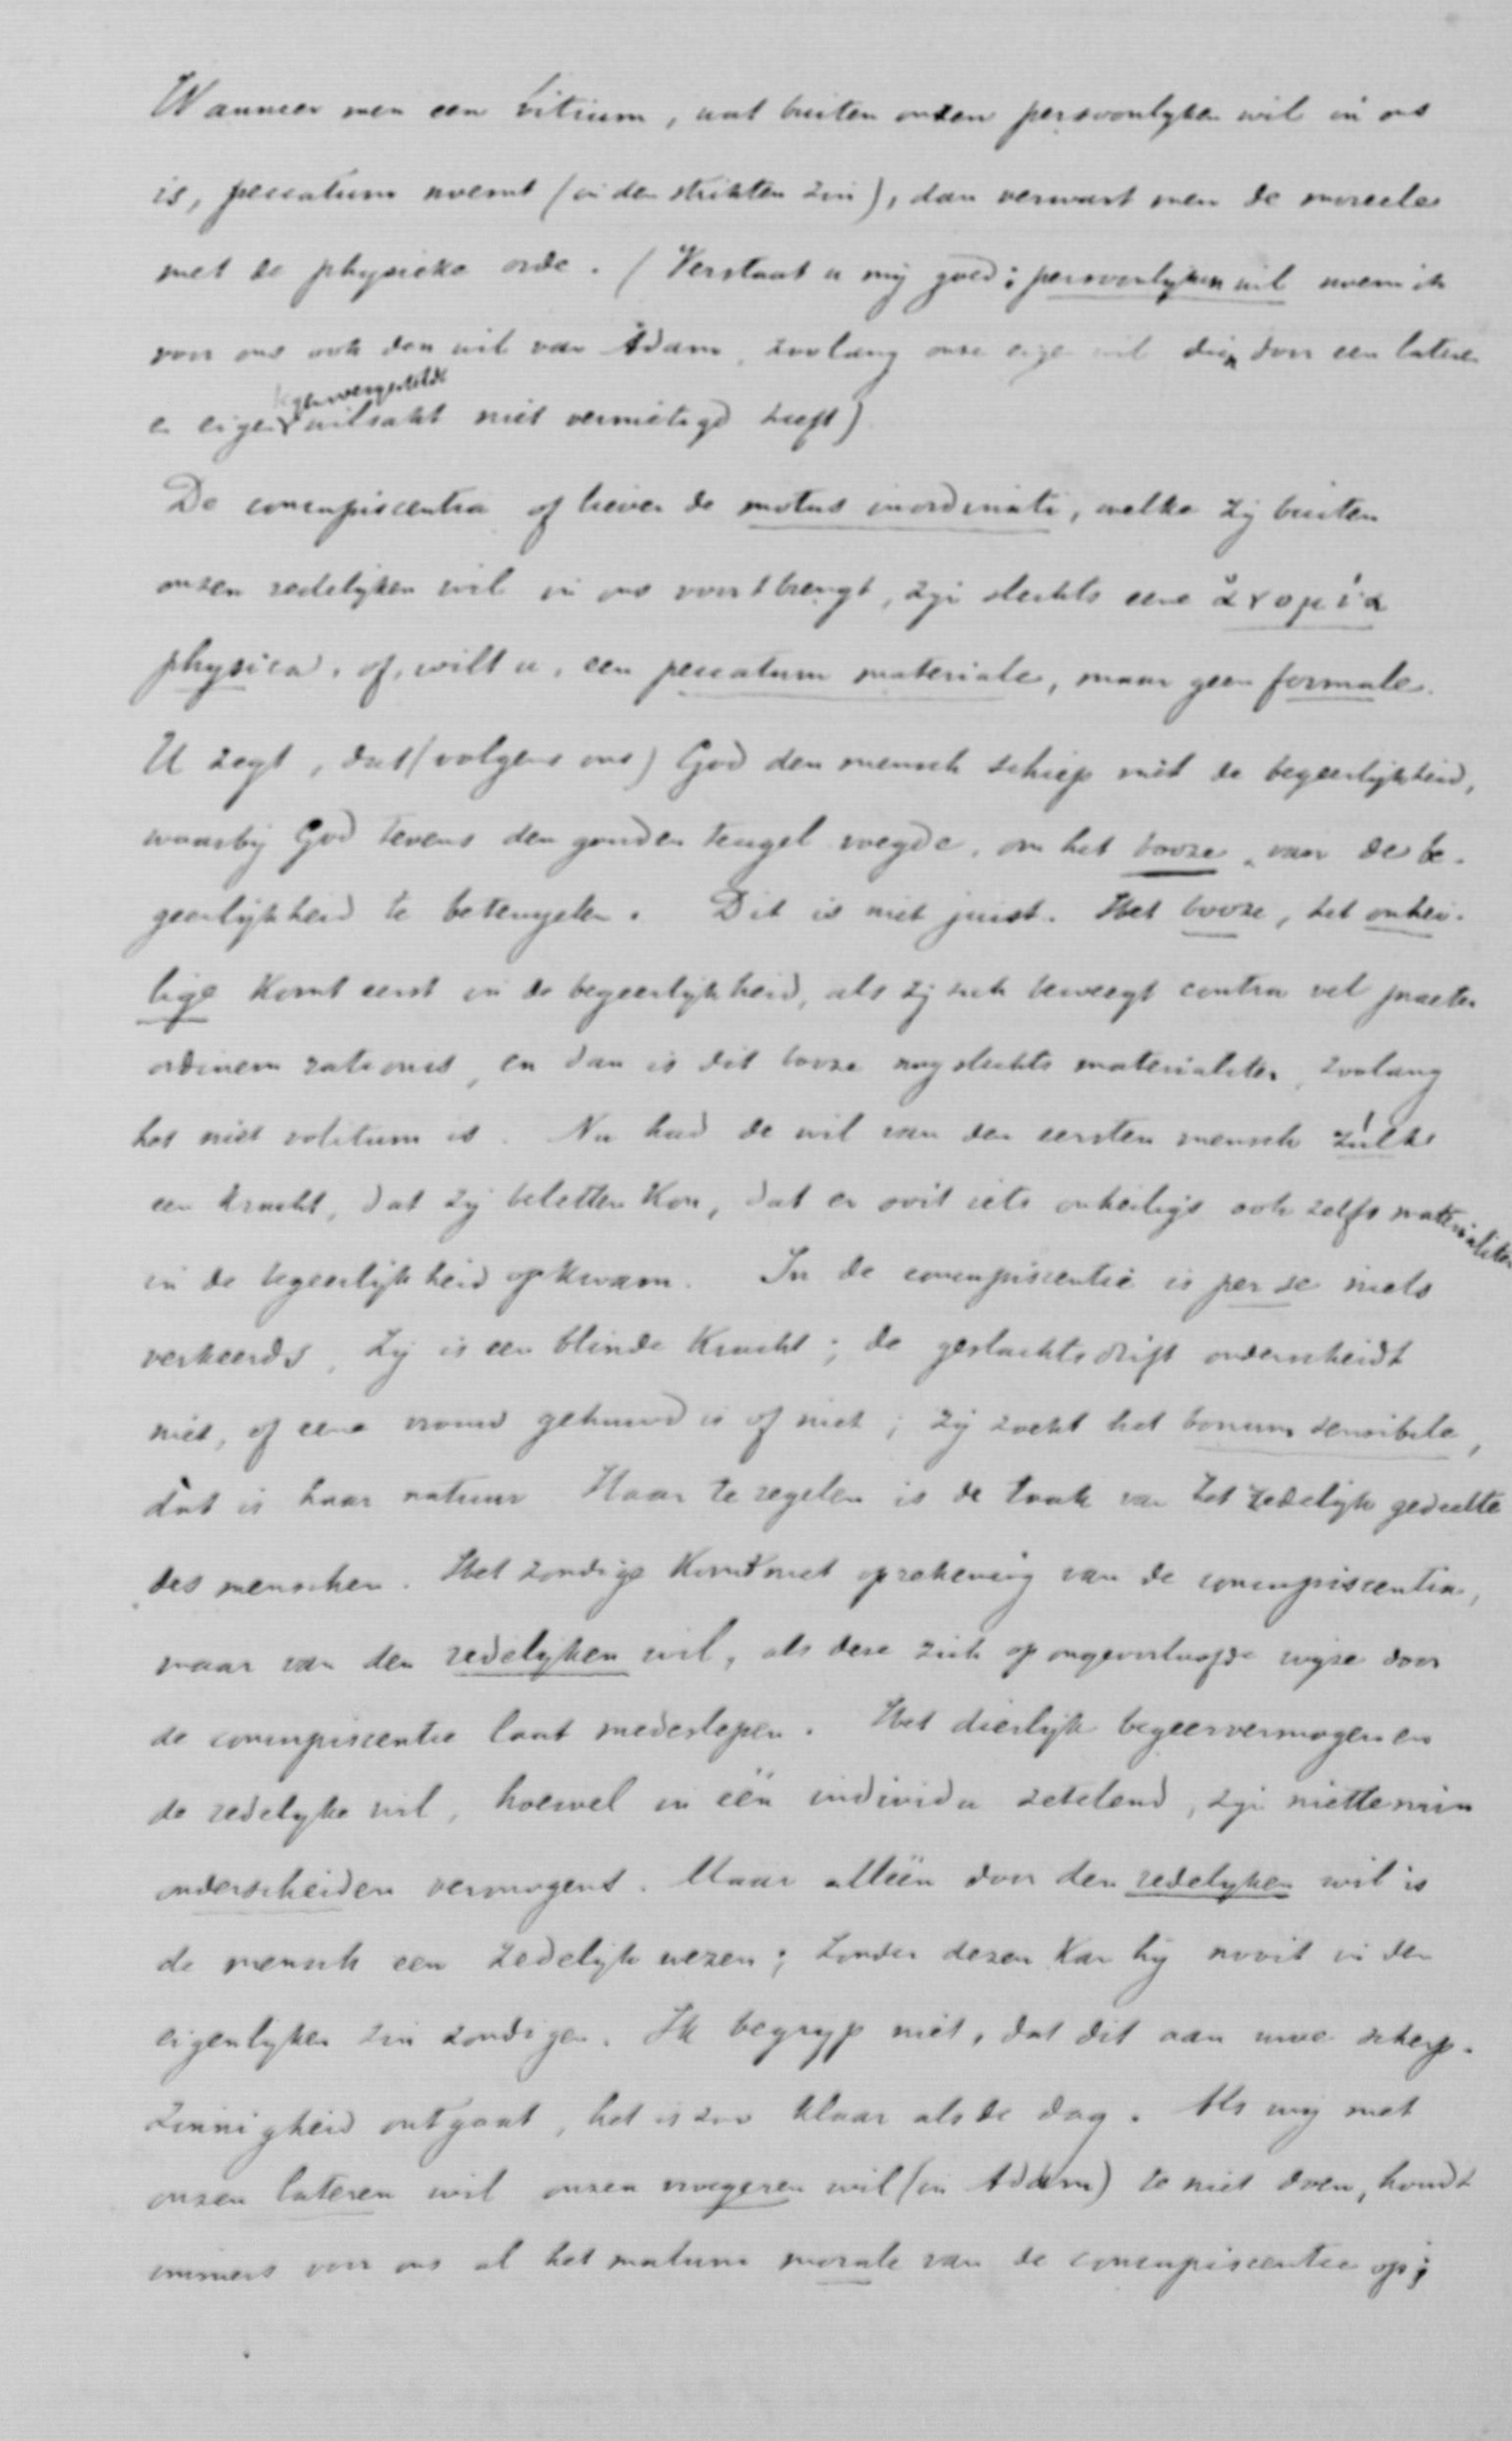 Wanneer men een vitium, wat buiten onzen persoonlyken wil in ons
is, peccatum noemt (in den strikten zin), dan verwart men de moreele
met de physieke orde. (Verstaat u mij goed: persoonlyken wil noem ik
voor ons ook den wil van Adam, zoolang onze eigen wil dien door een lateren
tegenovergestelde
en eigen wilsakt niet vernietigd heeft)
De concupiscentia of liever de motus inordinati, welke zij buiten
onzen redelijken wil in ons voortbrengt, zijn slechts eene ἀνομία
physica, of, wilt u, een peccatum materiale, maar geen formale.
U zegt, dat (volgens ons) God den mensch schiep mèt de begeerlijkheid,
waarbij God tevens den gouden teugel voegde, om het booze van de be-
geerlijkheid te beteugelen. Dit is niet juist. Het booze, het onhei-
lige komt eerst in de begeerlijkheid, als zij zich beweegt contra vel praeter
ordinem rationis, en dan is dit booze nog slechts materialiter, zoolang
het niet volitum is. Nu had de wil van den eersten mensch zúlke
een kracht, dat zij beletten kon, dat er ooit iets onheiligs ook zelfs materialiter
in de begeerlijkheid opkwam. In de concupiscentie is per se niets
verkeerds, zij is een blinde kracht; de geslachtsdrift onderscheidt
niet, of eene vrouw gehuwd is of niet; zij zoekt het bonum sensibile,
dàt is haar natuur. Haar te regelen is de taak van het redelijk gedeelte
des menschen. Het zondige komt niet op rekening van de concupiscentia,
maar van den redelijken wil, als deze zich op ongeoorloofde wijze door
de concupiscentie laat medeslepen. Het dierlijk begeervermogen en
de redelyke wil, hoewel in één individu zetelend, zijn niettemin
onderscheiden vermogens. Maar alléén door den redelyken wil is
de mensch een zedelijk wezen; zonder dezen kan hij nooit in den
eigenlyken zin zondigen. Ik begryp niet, dat dit aan uwe scherp-
zinnigheid ontgaat, het is zoo klaar als de dag. Als wij met
onzen lateren wil onzen vroegeren wil (in Adam) te niet doen, houdt
immers voor ons al het malum morale van de concupiscentie op;